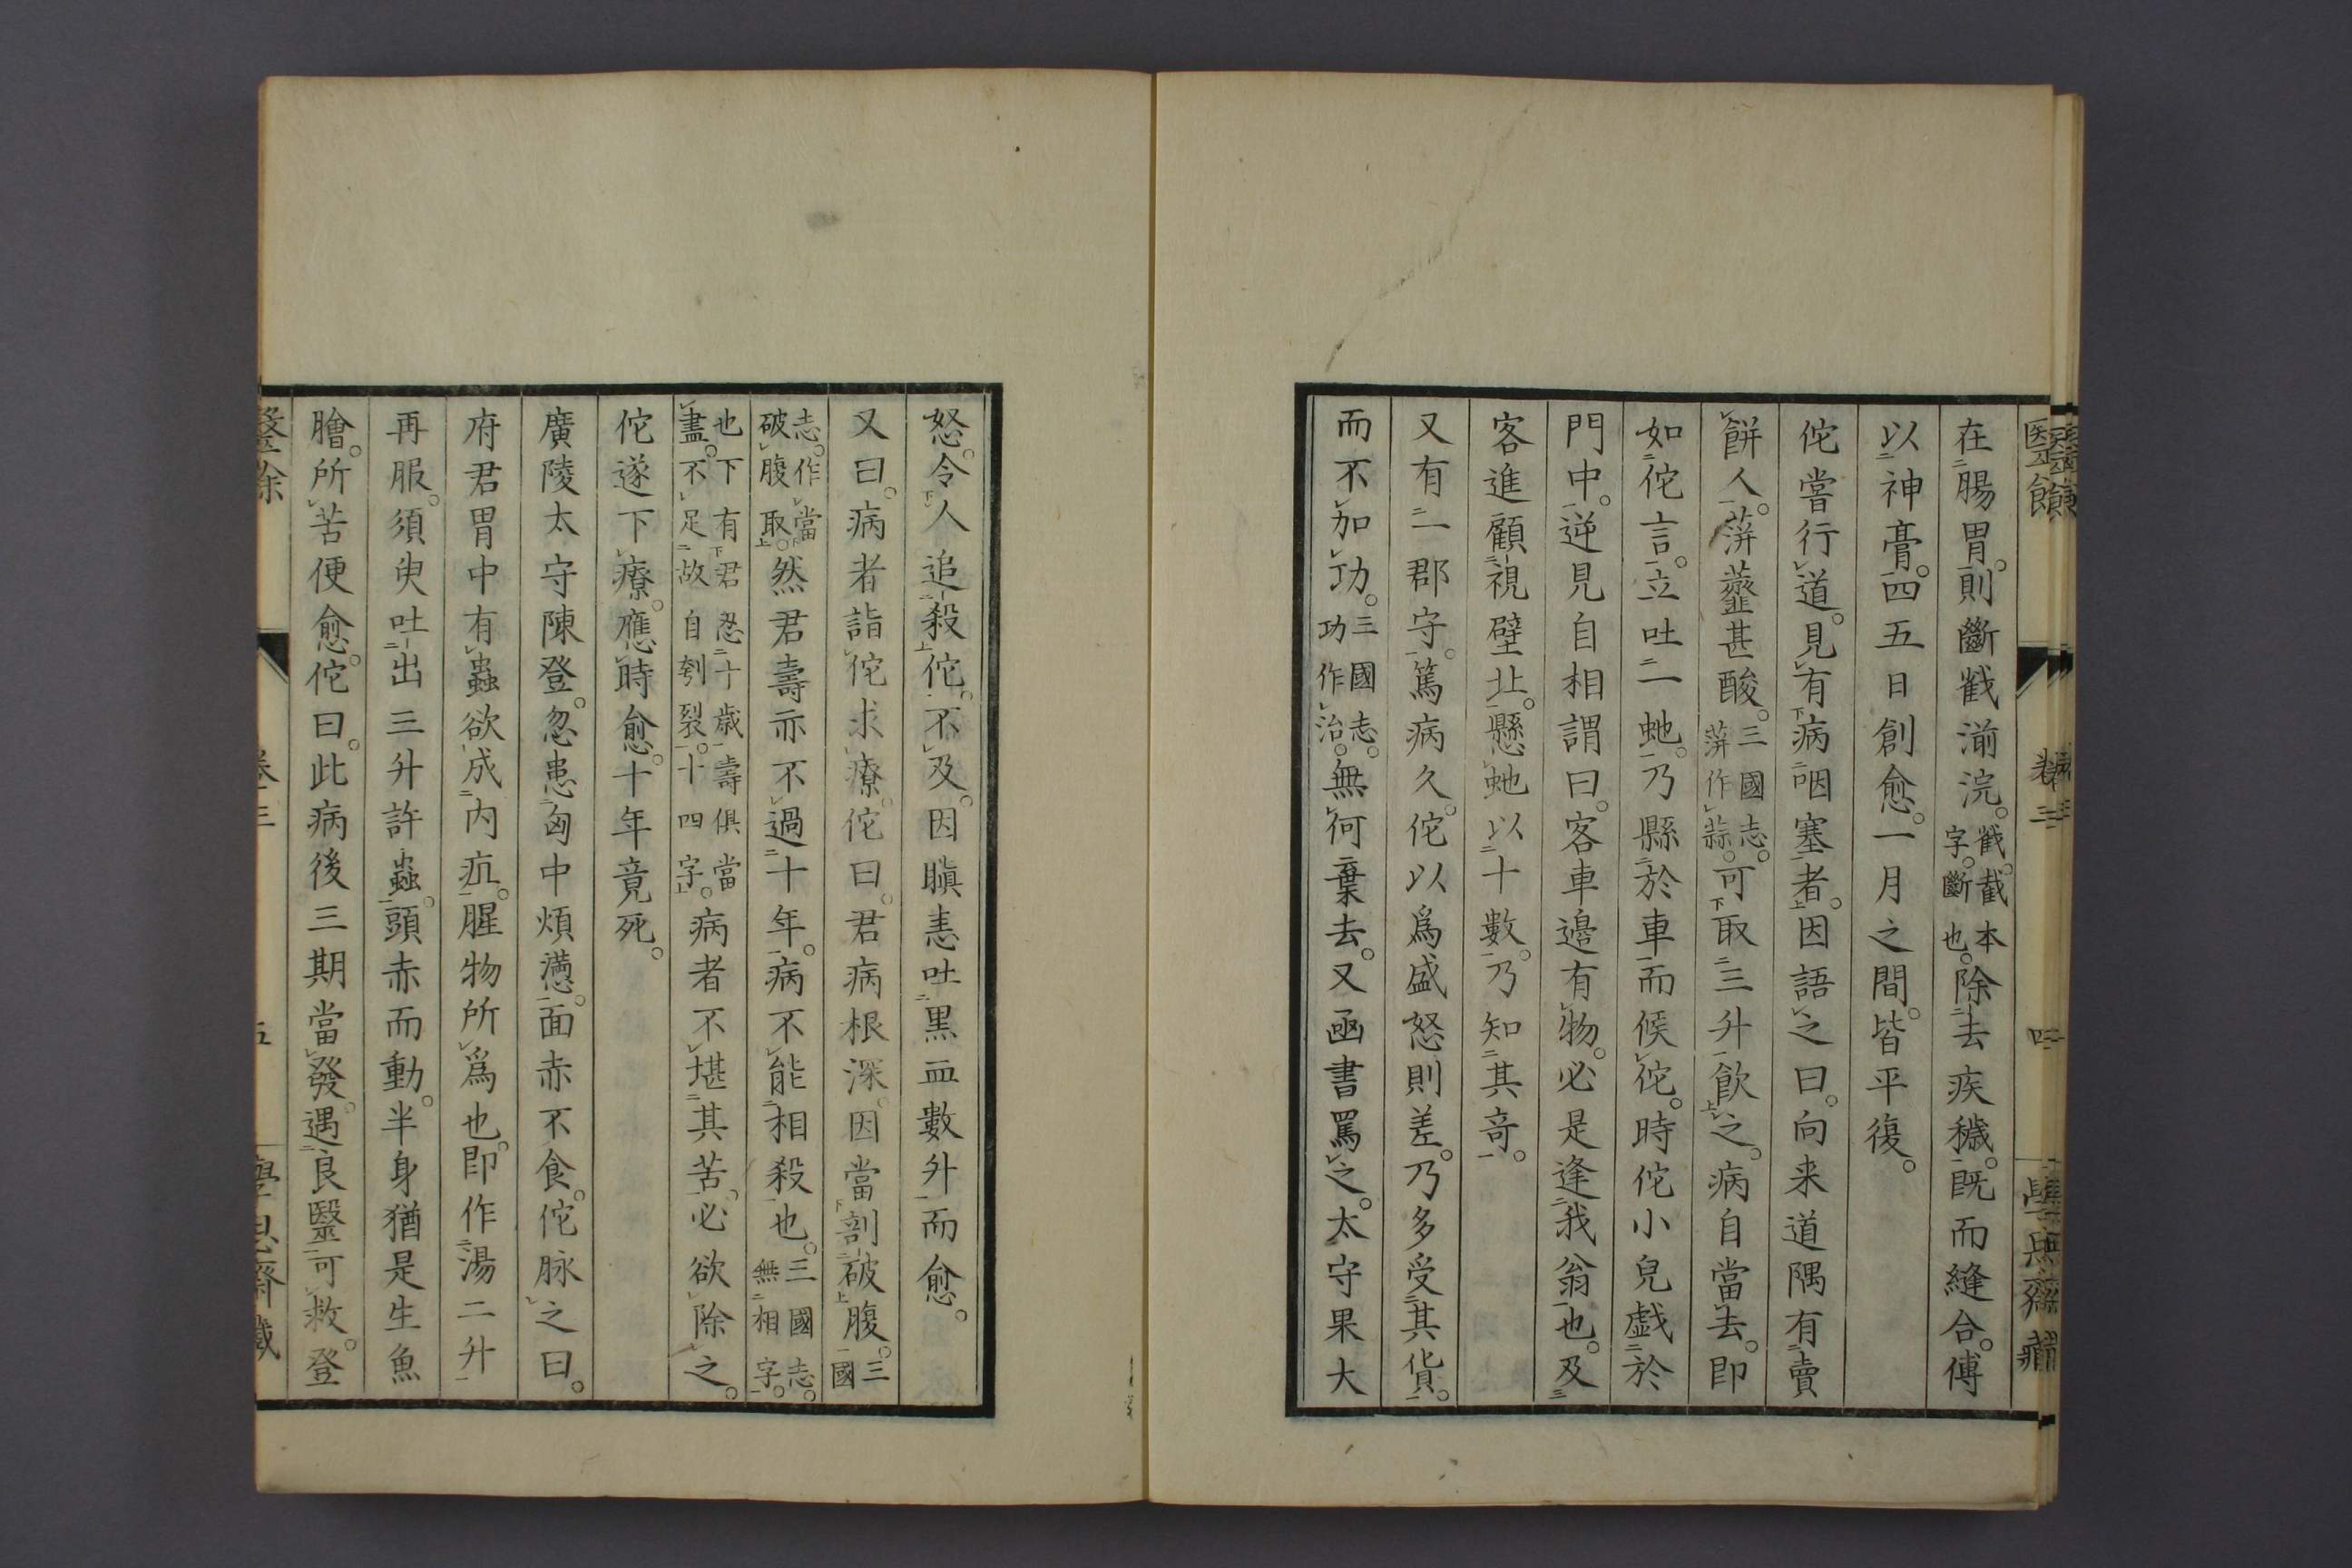 醫餘
卷三
四
學思齋藏
在腸胃。則斷截湔浣。截。截本字。斷也。除去疾穢。既而縫合。傅
以神膏。四五日創愈。一月之間。皆平復。
佗嘗行道。見有病咽塞者。因語之曰。向来道隅有賣
餅人。蓱虀甚酸。三國志。蓱作蒜。可取三升飲之。病自當去。即
如佗言。立吐一虵。乃縣於車而候佗。時佗小兒戯於
門中。逆見自相謂曰。客車邉有物。必是逢我翁也。及
客進顧視壁北。懸虵以十數。乃知其竒。
又有一郡守。篤病久。佗以爲盛怒則差。乃多受其貨。
而不加功。三國志。功作治。無何棄去。又凾書罵之。太守果大
怒。令人追殺佗。不及。因瞋恚吐黒血數升而愈。
又曰。病者詣佗求療。佗曰。君病根深。因當剖破腹。三國
志。作當破腹取。然君壽亦不過十年。病不能相殺也。三國志。無相字。
也下有君忍十歳壽俱當盡。不足故自刳裂。十四字。病者不堪其苦。必欲除之。
佗遂下療。應時愈。十年竟死。
廣陵太守陳登。忽患匈中煩懣。面赤不食。佗脉之曰。
府君胃中有蟲。欲成内疽。腥物所爲也。即作湯二升
再服。須臾吐出三升許蟲。頭赤而動。半身猶是生魚
膾。所苦便愈。佗曰。此病後三期當發。遇良醫可救。登
醫餘
卷三
五
學思齋藏